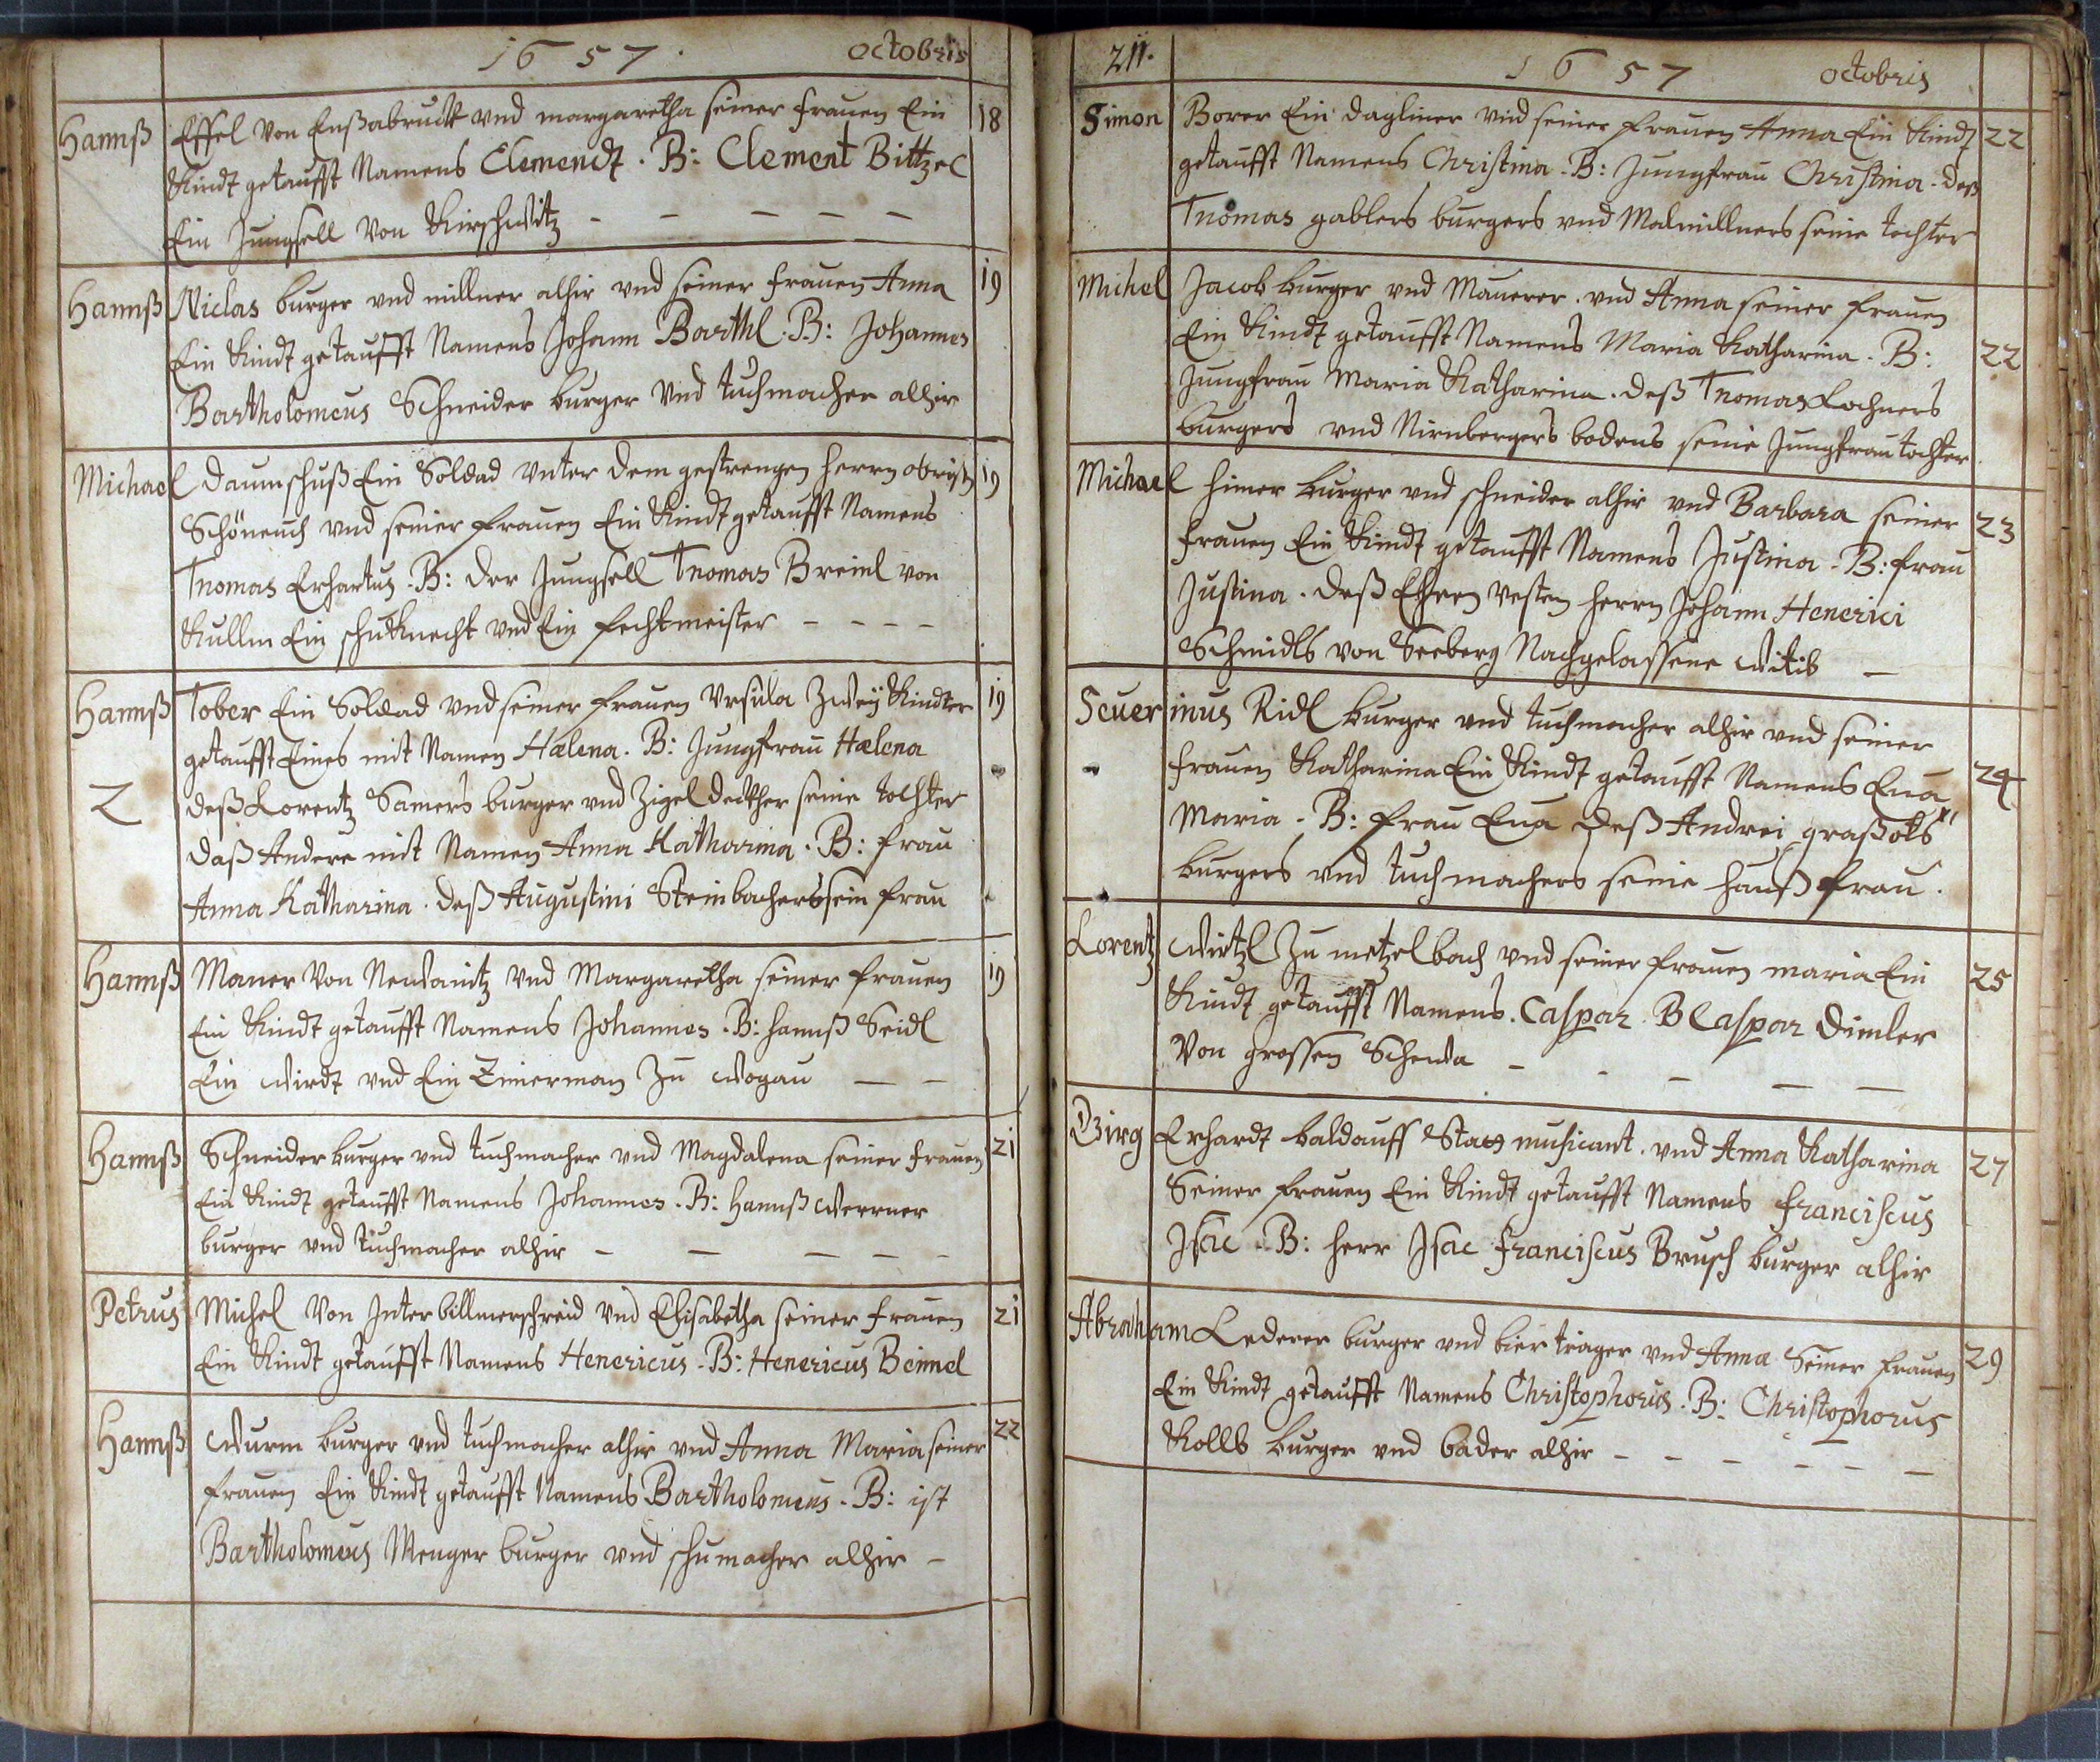 1657. octobris
Hannß Effel von Enßabruckt vnd margaretha seiner frauen Ein 18
Kindt getaufft Namens Clemendt. B: Clement Bittzel
Ein Jungsell von Kirschwitz - - - - -
Hannß Niclas burger vnd millner alhir vnd seiner frauen Anna 19
Ein Kindt getaufft Namens Johann Barthl. B: Johannes
Bartholomeus Schneider burger vnd tuchmacher alhir
Michael daumschuß Ein Soldad vnter dem gestrengen herrn obrist 19
Schöneich vnd seiner frauen Ein Kindt getaufft Namens
Thomas Erhartus. B: der Jungsell Thomas Breinl von
Kullm Ein schuknecht vnd Ein fechtmeister - - - -
Hannß Tober Ein Soldad vnd seiner frauen Vrsula Zweÿ Kindter 19
getaufft Eines mit Namen Hælena. B: Jungfrau Hælena
2 deß Lorentz Samers burger vnd Zigeldeckher seine tochter
daß Andere mit Namen Anna Katharina. B: frau
Anna Katharina. deß Augustini Steinbachers sein frau
Hannß Maner von Newanitz vnd Margaretha seiner frauen 19
Ein Kindt getaufft Namens Johannes. B: hannß Seidl
Ein wirdt vnd Ein Zimerman Zu wogau - -
Hannß Schneider burger vnd tuchmacher vnd Magdalena seiner frauen 21
Ein Kindt getaufft Namens Johannes. B: Hannß werrner
burger vnd tuchmacher alhir - - - - -
Petrus Michel von Interbillmerschreid vnd Elisabetha seiner frauen 21
Ein Kindt getaufft Namens Henericus. B: Henericus Beimel
Hannß Wurm burger vnd tuchmacher alhir vnd Anna Maria seiner 22
frauen Ein Kindt getaufft Namens Bartholomeus. B: ist
Bartholomeus Menger burger vnd schumacher alhir -
211. 1657 octobris
Simon Borer Ein dagliner vnd seiner frauen Anna Ein Kindt 22
getaufft Namens Christina. B: Jungfrau Christina. deß
Thomas gablers burgers vnd Malmillners seine tochter
Michel Jacob burger vnd Maurer. vnd Anna seiner frauen
Ein Kindt getaufft Namens Maria Katharina. B: 22
Jungfrau Maria Katharina. deß Thomas Lochners
burgers vnd Nirnbergers bodens seine Jungfrau tochter
Michael himer burger vnd schneider alhir vnd Barbara seiner 23
frauen Ein Kindt getaufft Namens Justina. B: frau
Justina. deß Ehren vesten herrn Johann Henerici
Schmidls von Seeberg Nachgelassene witib -
Seuerinus Ridl burger vnd tuchmacher alhir vnd seiner
frauen Katharina Ein Kindt getaufft Namens Eua 24
Maria. B: frau Eua deß Andrei graßolts
burgers vnd tuchmachers seine hauß frau.
Lorentz Wirtzl Zu metzelbach vnd seiner frauen maria Ein 25
Kindt getaufft Namens. Caspar. B Caspar Dimler
von grossen Schewa - - - - -
Girg Erhardt baldauff Stats musicant. vnd Anna Katharina 27
Seiner frauen Ein Kindt getaufft Namens franciscus
Isac. B: herr Isac franciscus Brusch burger alhir
Abraham Lederer burger vnd bier trager vnd Anna Seiner frauen 29
Ein Kindt getaufft Namens Christophorus. B: Christophorus
Kolb burger vnd bader alhir - - - - - -